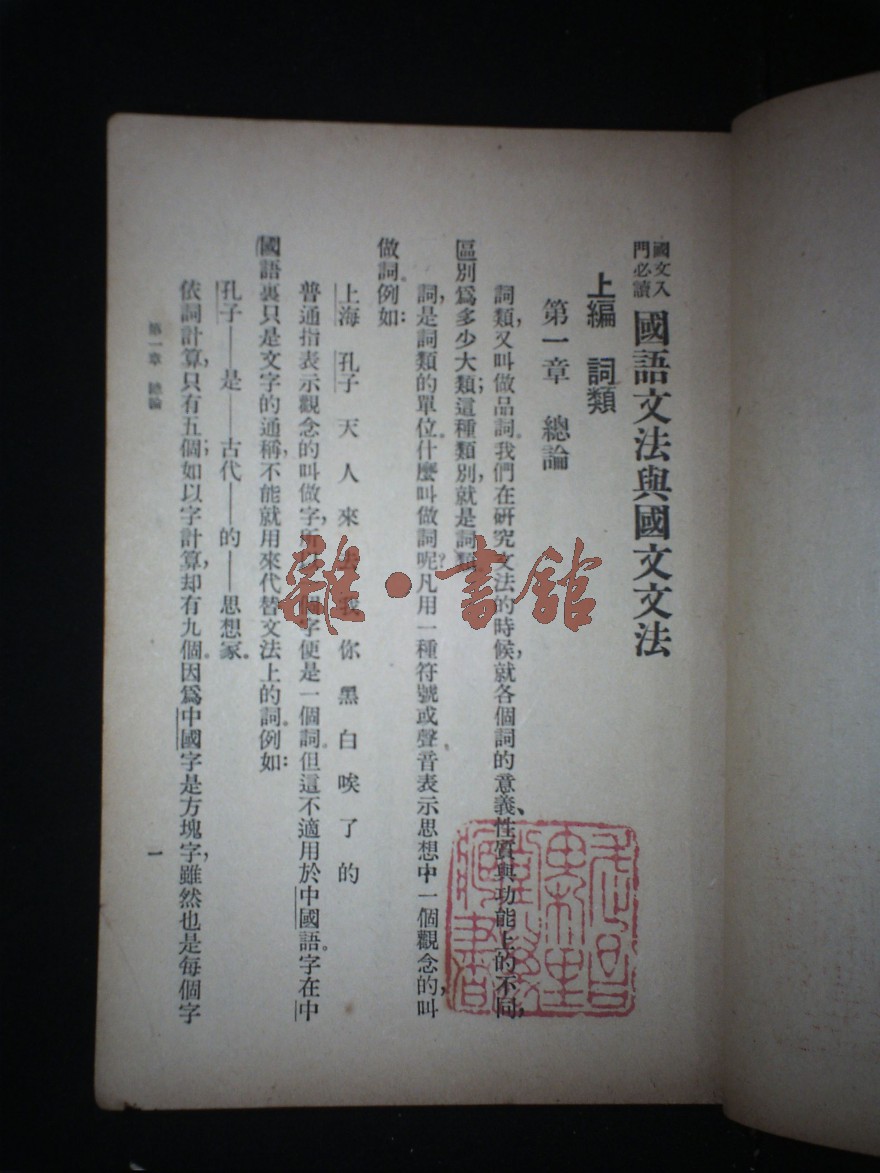 國文入
門必讀
國語文法與國文文法
上編 詞類
第一章 總論
詞類，又叫做品詞。我們在研究文法的時候，就各個詞的意義、性質與功能上的不同，
區別爲多少大類；這種類別，就是詞類。
詞，是詞類的單位。什麼叫做詞呢？凡用一種符號或聲音表示思想中一個觀念的，叫
做詞。例如：
上海 孔子 天 人 來 去 我 你 黑 白 唉 了 的
普通指表示觀念的叫做字，所以一個字便是一個詞。但這不適用於中國語。字在中
國語裏只是文字的通稱，不能就用來代替文法上的詞。例如：
孔子——是——古代——的——思想家。
依詞計算，只有五個；如以字計算，却有九個。因爲中國字是方塊字，雖然也是每個字
第一章 總論
一
雜·書館
藏書